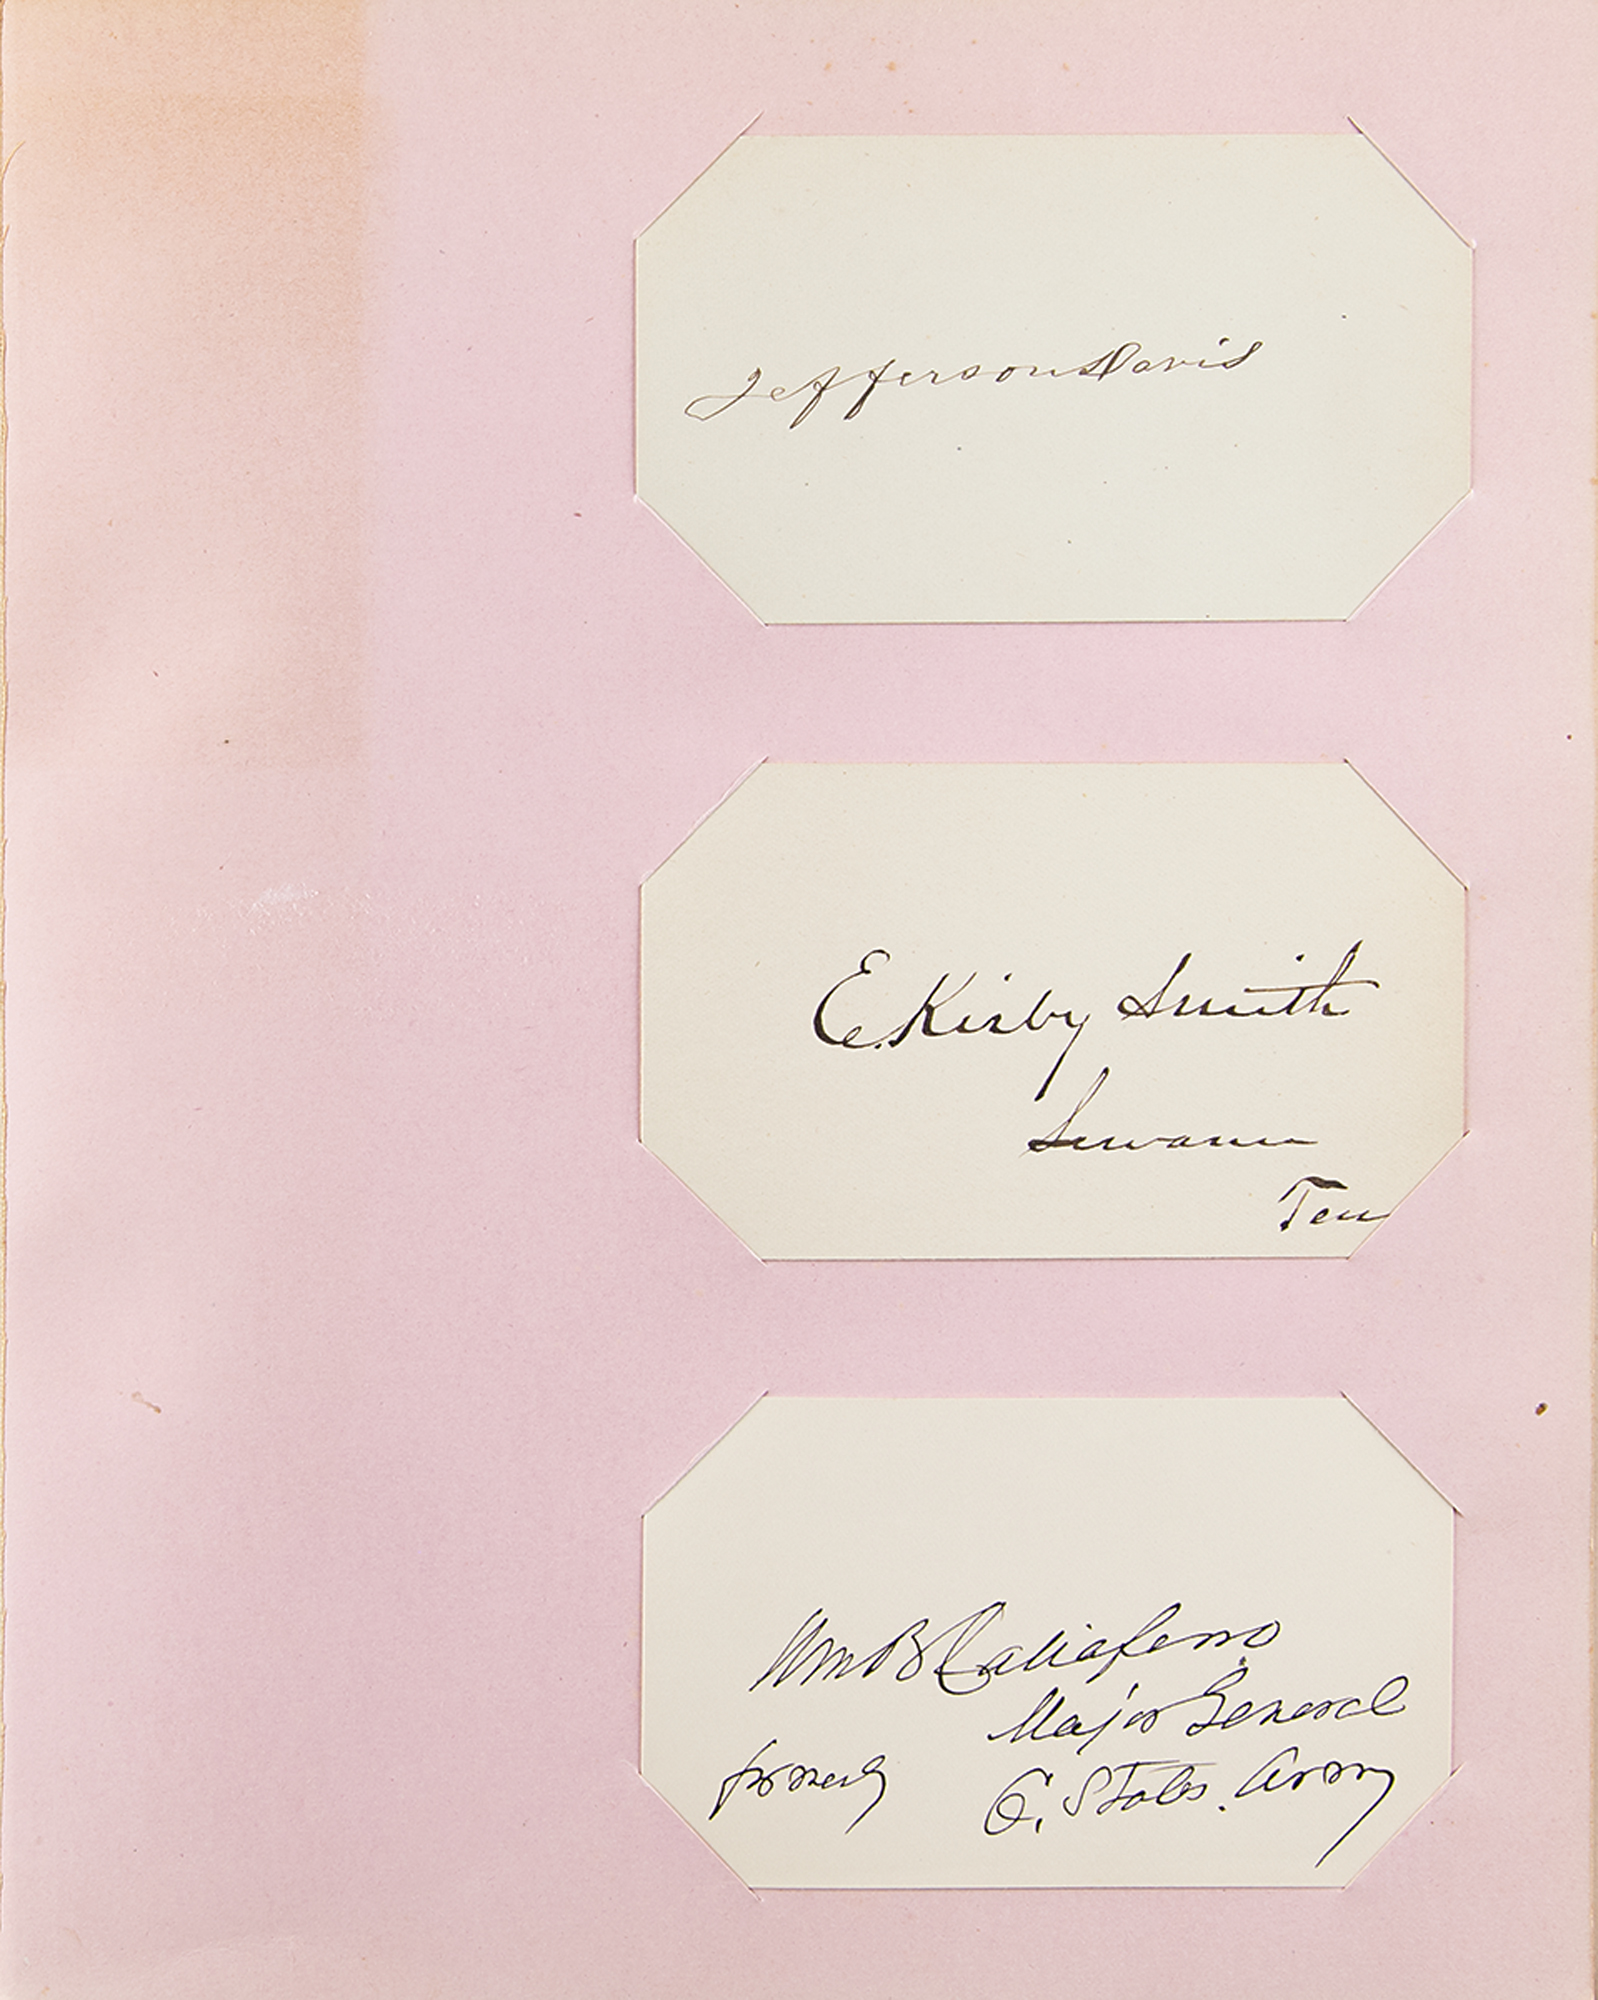 Jefferson Davis
E. Kirby Smith
Sewanee
Ten
Wm B Taliaferro
Major General
formerly C. States. Army